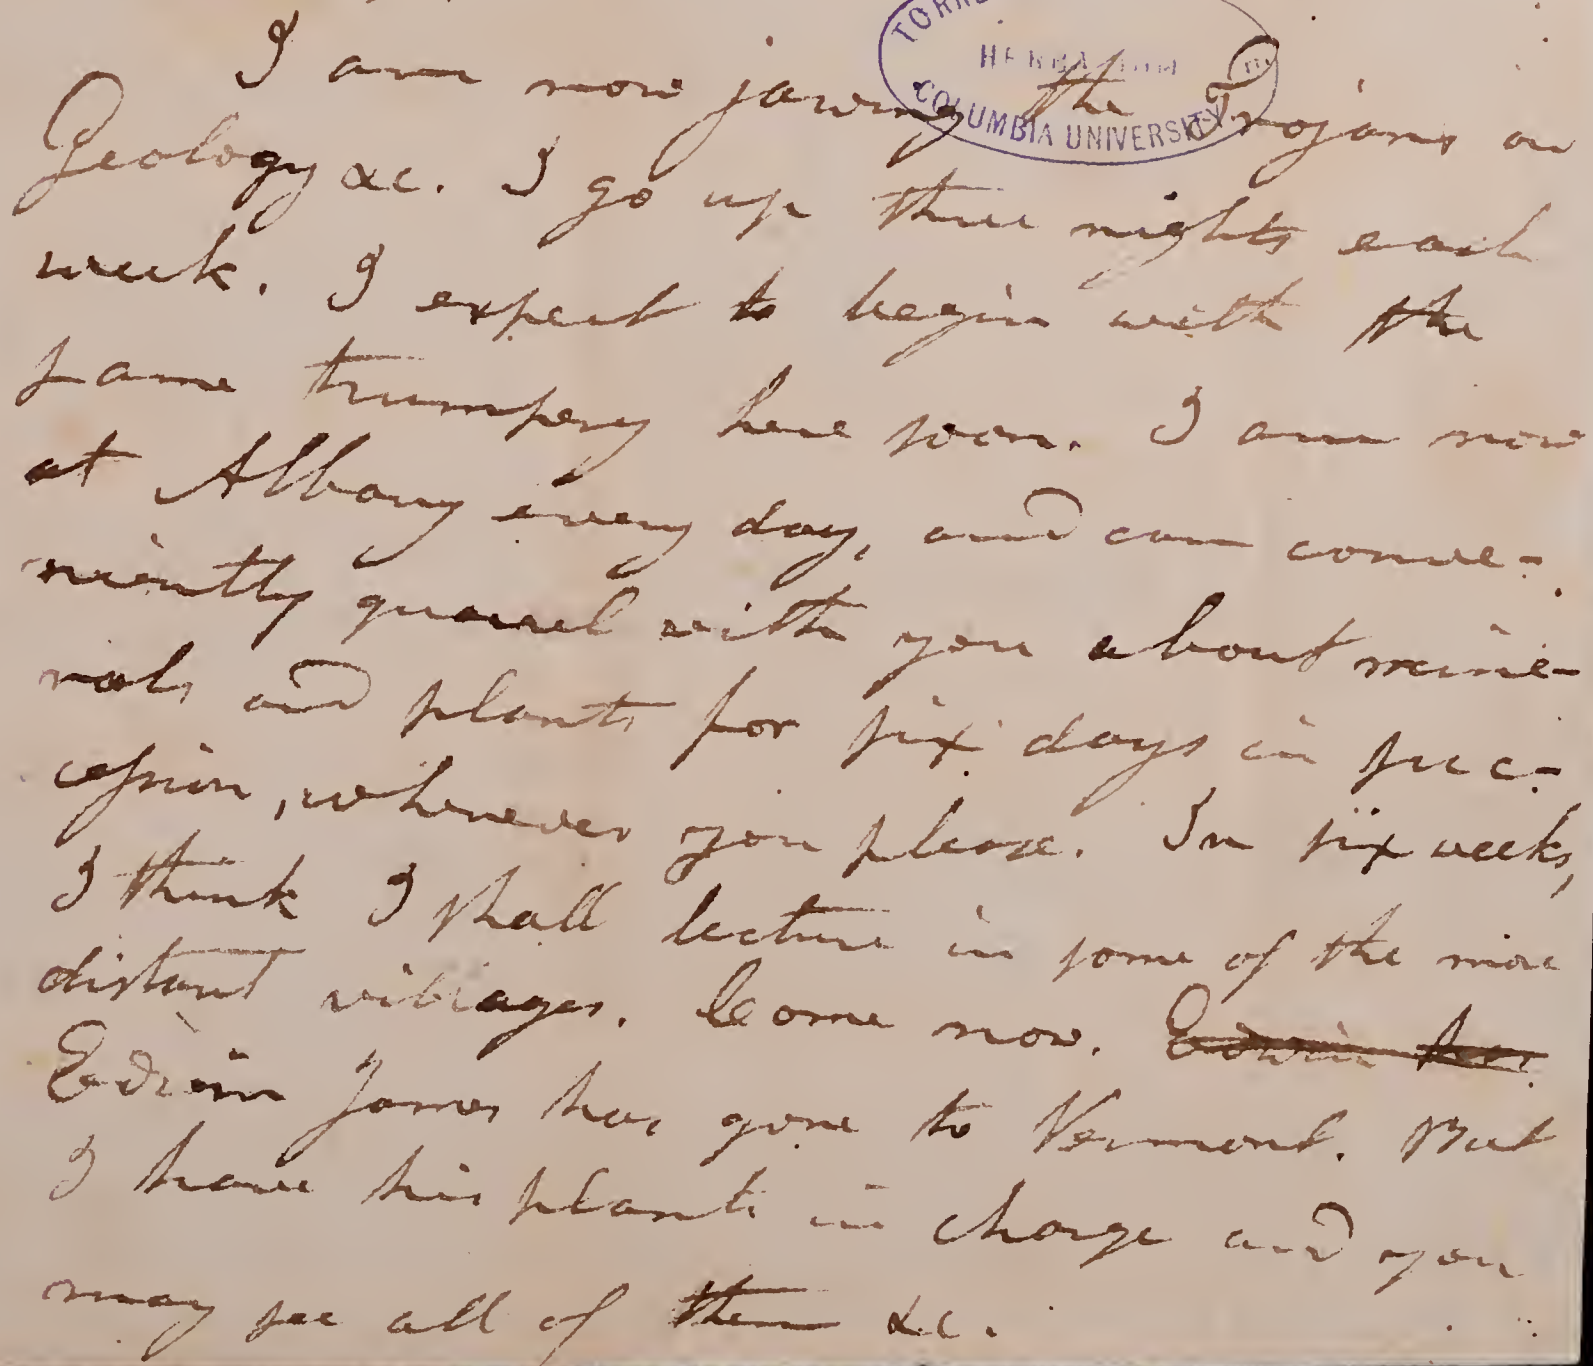 TORRE
HERBARIUM
COLUMBIA UNIVERSITY
I am now jawing the Trojans on
Geology &c. I go up three nights each
week. I expect to begin with the
same trumpery here soon. I am now
at Albany every day, and can conve-
niently quarrel with you about mine-
rals and plants for six days in suc-
cession, whenever you please. In six weeks,
I think I shall lecture in some of the more
distant villages. Come now. Edwin has
Edwin James has gone to Vermont. But
I have his plants in charge and you
may see all of them &c.